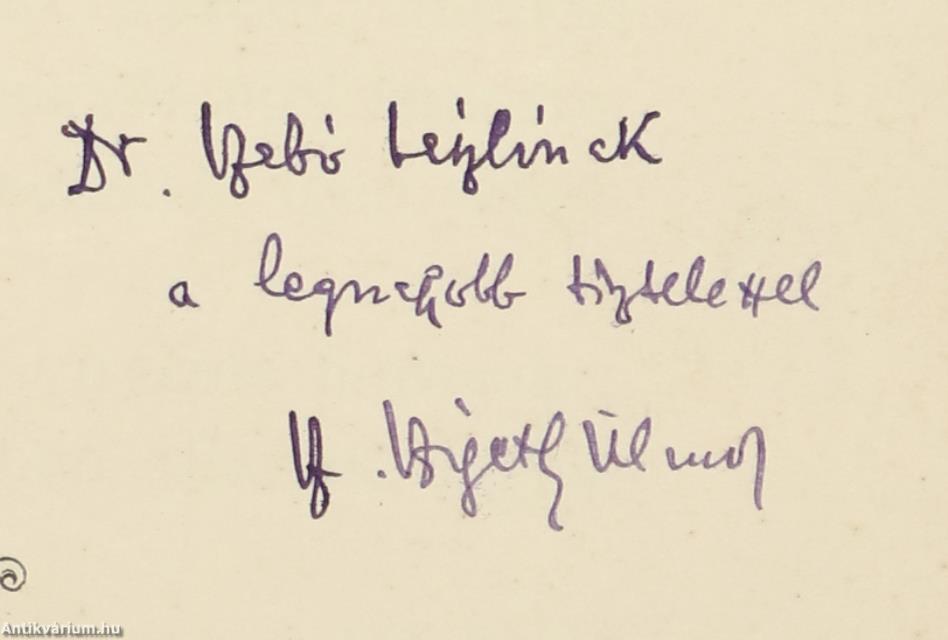 Dr. Szabó Lászlónak
a legnagyobb tisztelettel
Szigethy Vilmos
Antikvárium.hu